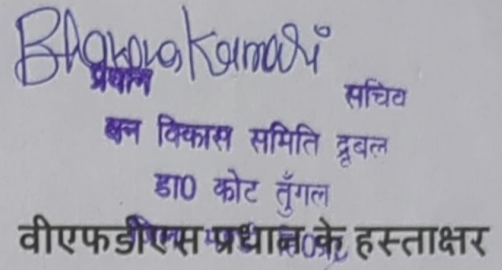 Bhawna Kumari
प्रधान सचिव
वन विकास समिति द्रूबल
डा0 कोट तुँगल
वीएफडीएस प्रधान के हस्ताक्षर